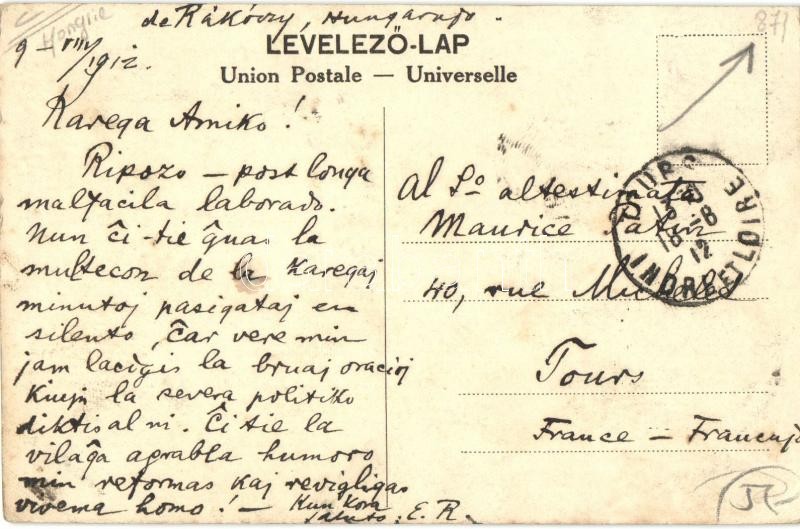 Hongrie
de Rákóczy, Hungarujo.
9-VIII/1912.
871
LEVELEZŐ-LAP
Union Postale — Universelle
Karega Amiko!
Ripozo — post longa
malfacila laborado.
Nun ĉi-tie ĝuas la
multecon de la karegaj
minutoj pasigataj en
silento, ĉar vere min
jam lacigis la bruaj oracioj
kiujn la severa politiko
diktis al ni. Ĉi tie la
vilaĝa agrabla humoro
min reformas kaj revigligas
vivema homo! — Kun kora
saluto: E. R.
Al So altestimata
Maurice
40, rue
Tours
France — Francujo
TOURS
18-8
12
INDRE ET LOIRE